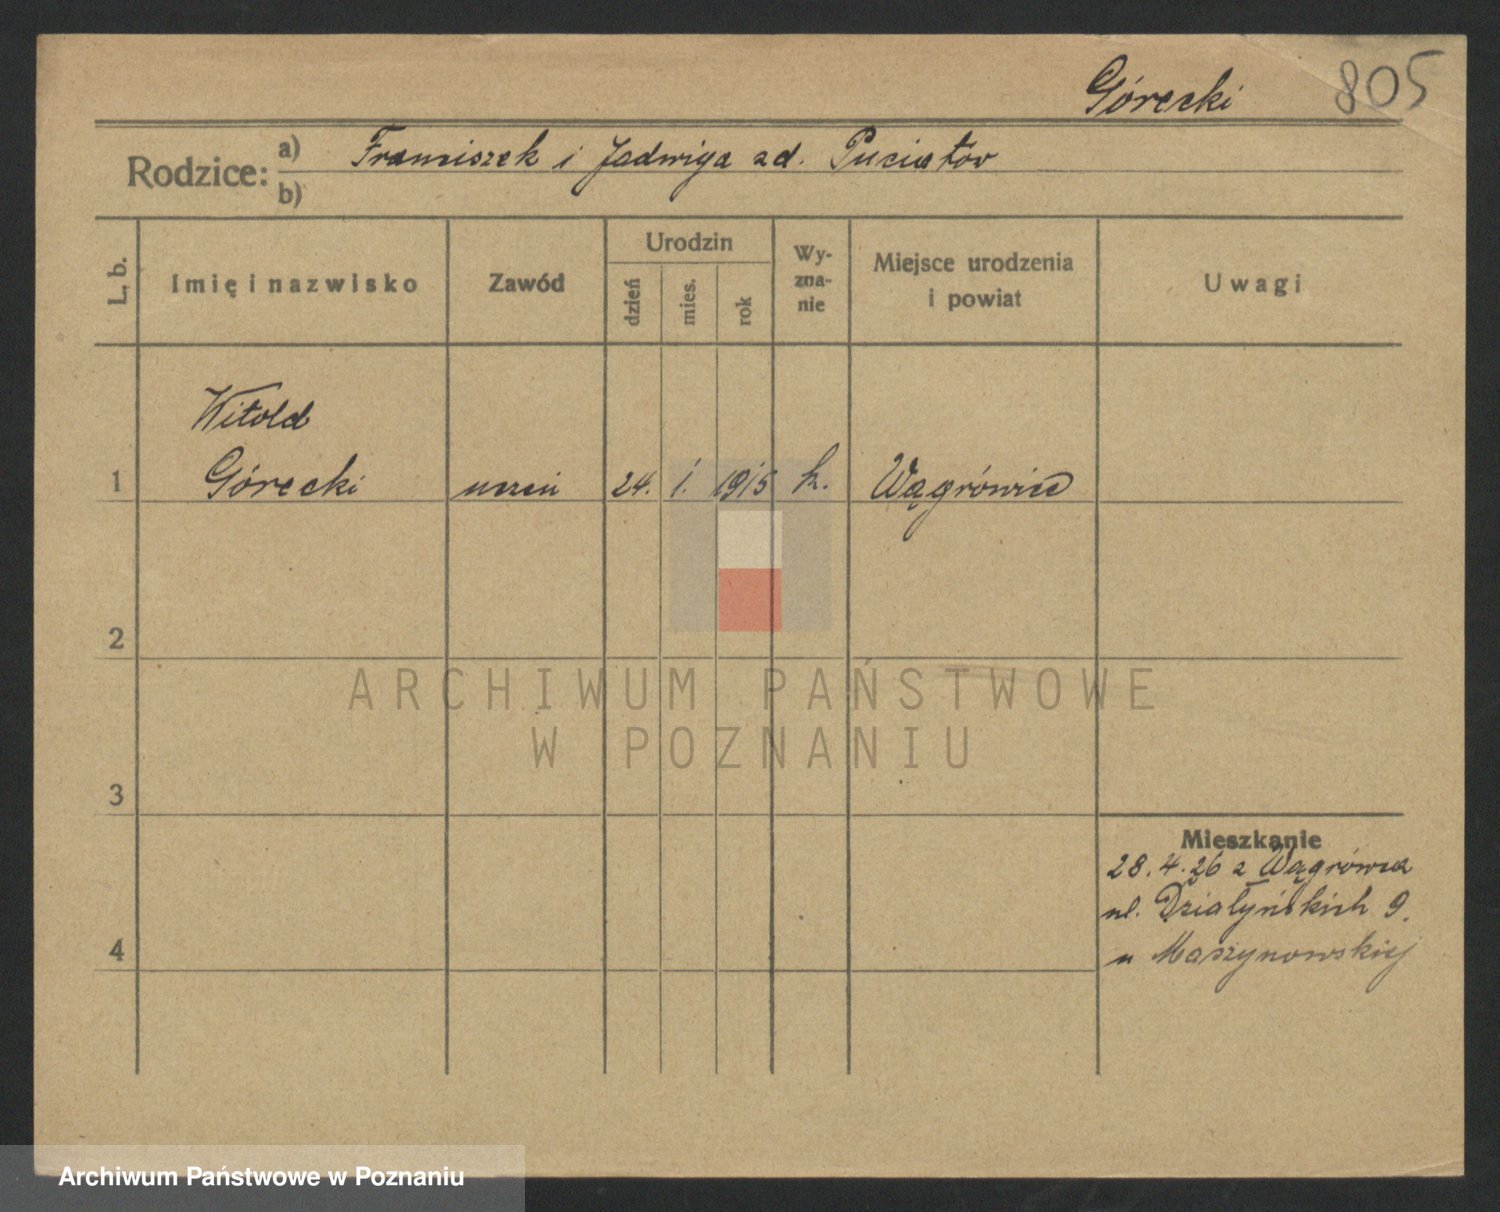 Górecki 805
Rodzice: a) Franciszek i Jadwiga zd. Puciatów
b)
L. b. Imię i nazwisko Zawód Urodzin dzień mies. rok Wyznanie Miejsce urodzenia i powiat Uwagi
Witold
1 Górecki uczeń 24. 1. 1915 k. Wągrówiec
2
ARCHIWUM PAŃSTWOWE
W POZNANIU
3
Mieszkanie
28.4.26 z Wągrówca
ul. Działyńskich 9.
4 u Maszynowskiej
Archiwum Państwowe w Poznaniu